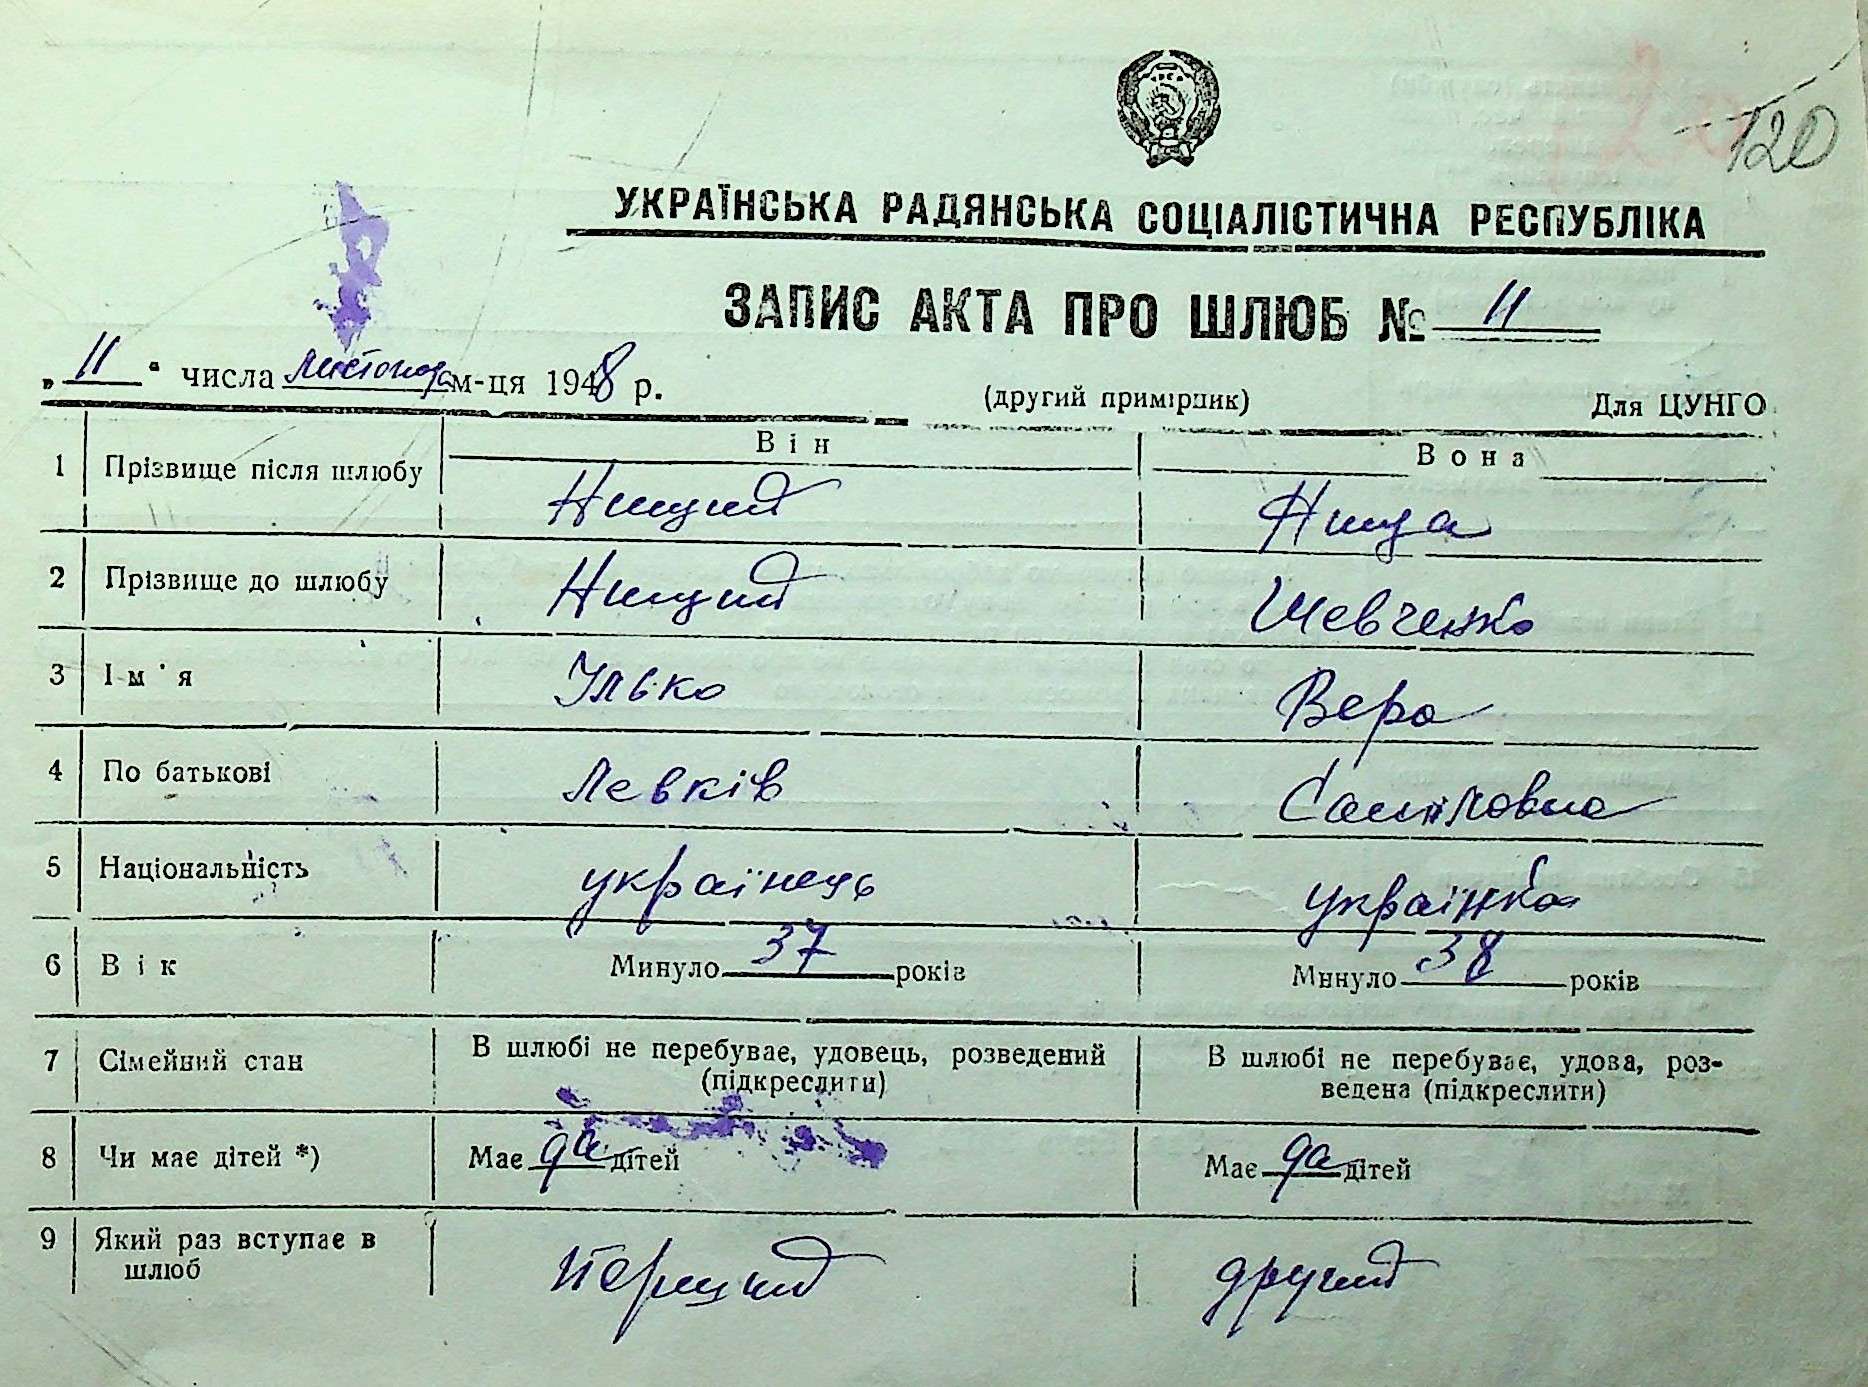 120
УКРАЇНСЬКА РАДЯНСЬКА СОЦІАЛІСТИЧНА РЕСПУБЛІКА
ЗАПИС АКТА ПРО ШЛЮБ № 11
„ 11 “ числа листопада м-ця 1948 р.
(другий примірник) Для ЦУНГО
Він Вона
1 Прізвище після шлюбу Нищий Нища
2 Прізвище до шлюбу Нищий Шевченко
3 Ім'я Улько Вера
4 По батькові Левків Самйловна
5 Національність українець українка
6 Вік Минуло 37 років Минуло 38 років
7 Сімейний стан В шлюбі не перебуває, удовець, розведений В шлюбі не перебуває, удова, роз-
(підкреслити) ведена (підкреслити)
8 Чи має дітей *) Має да дітей Має да дітей
9 Який раз вступає в Перщий другий
шлюб